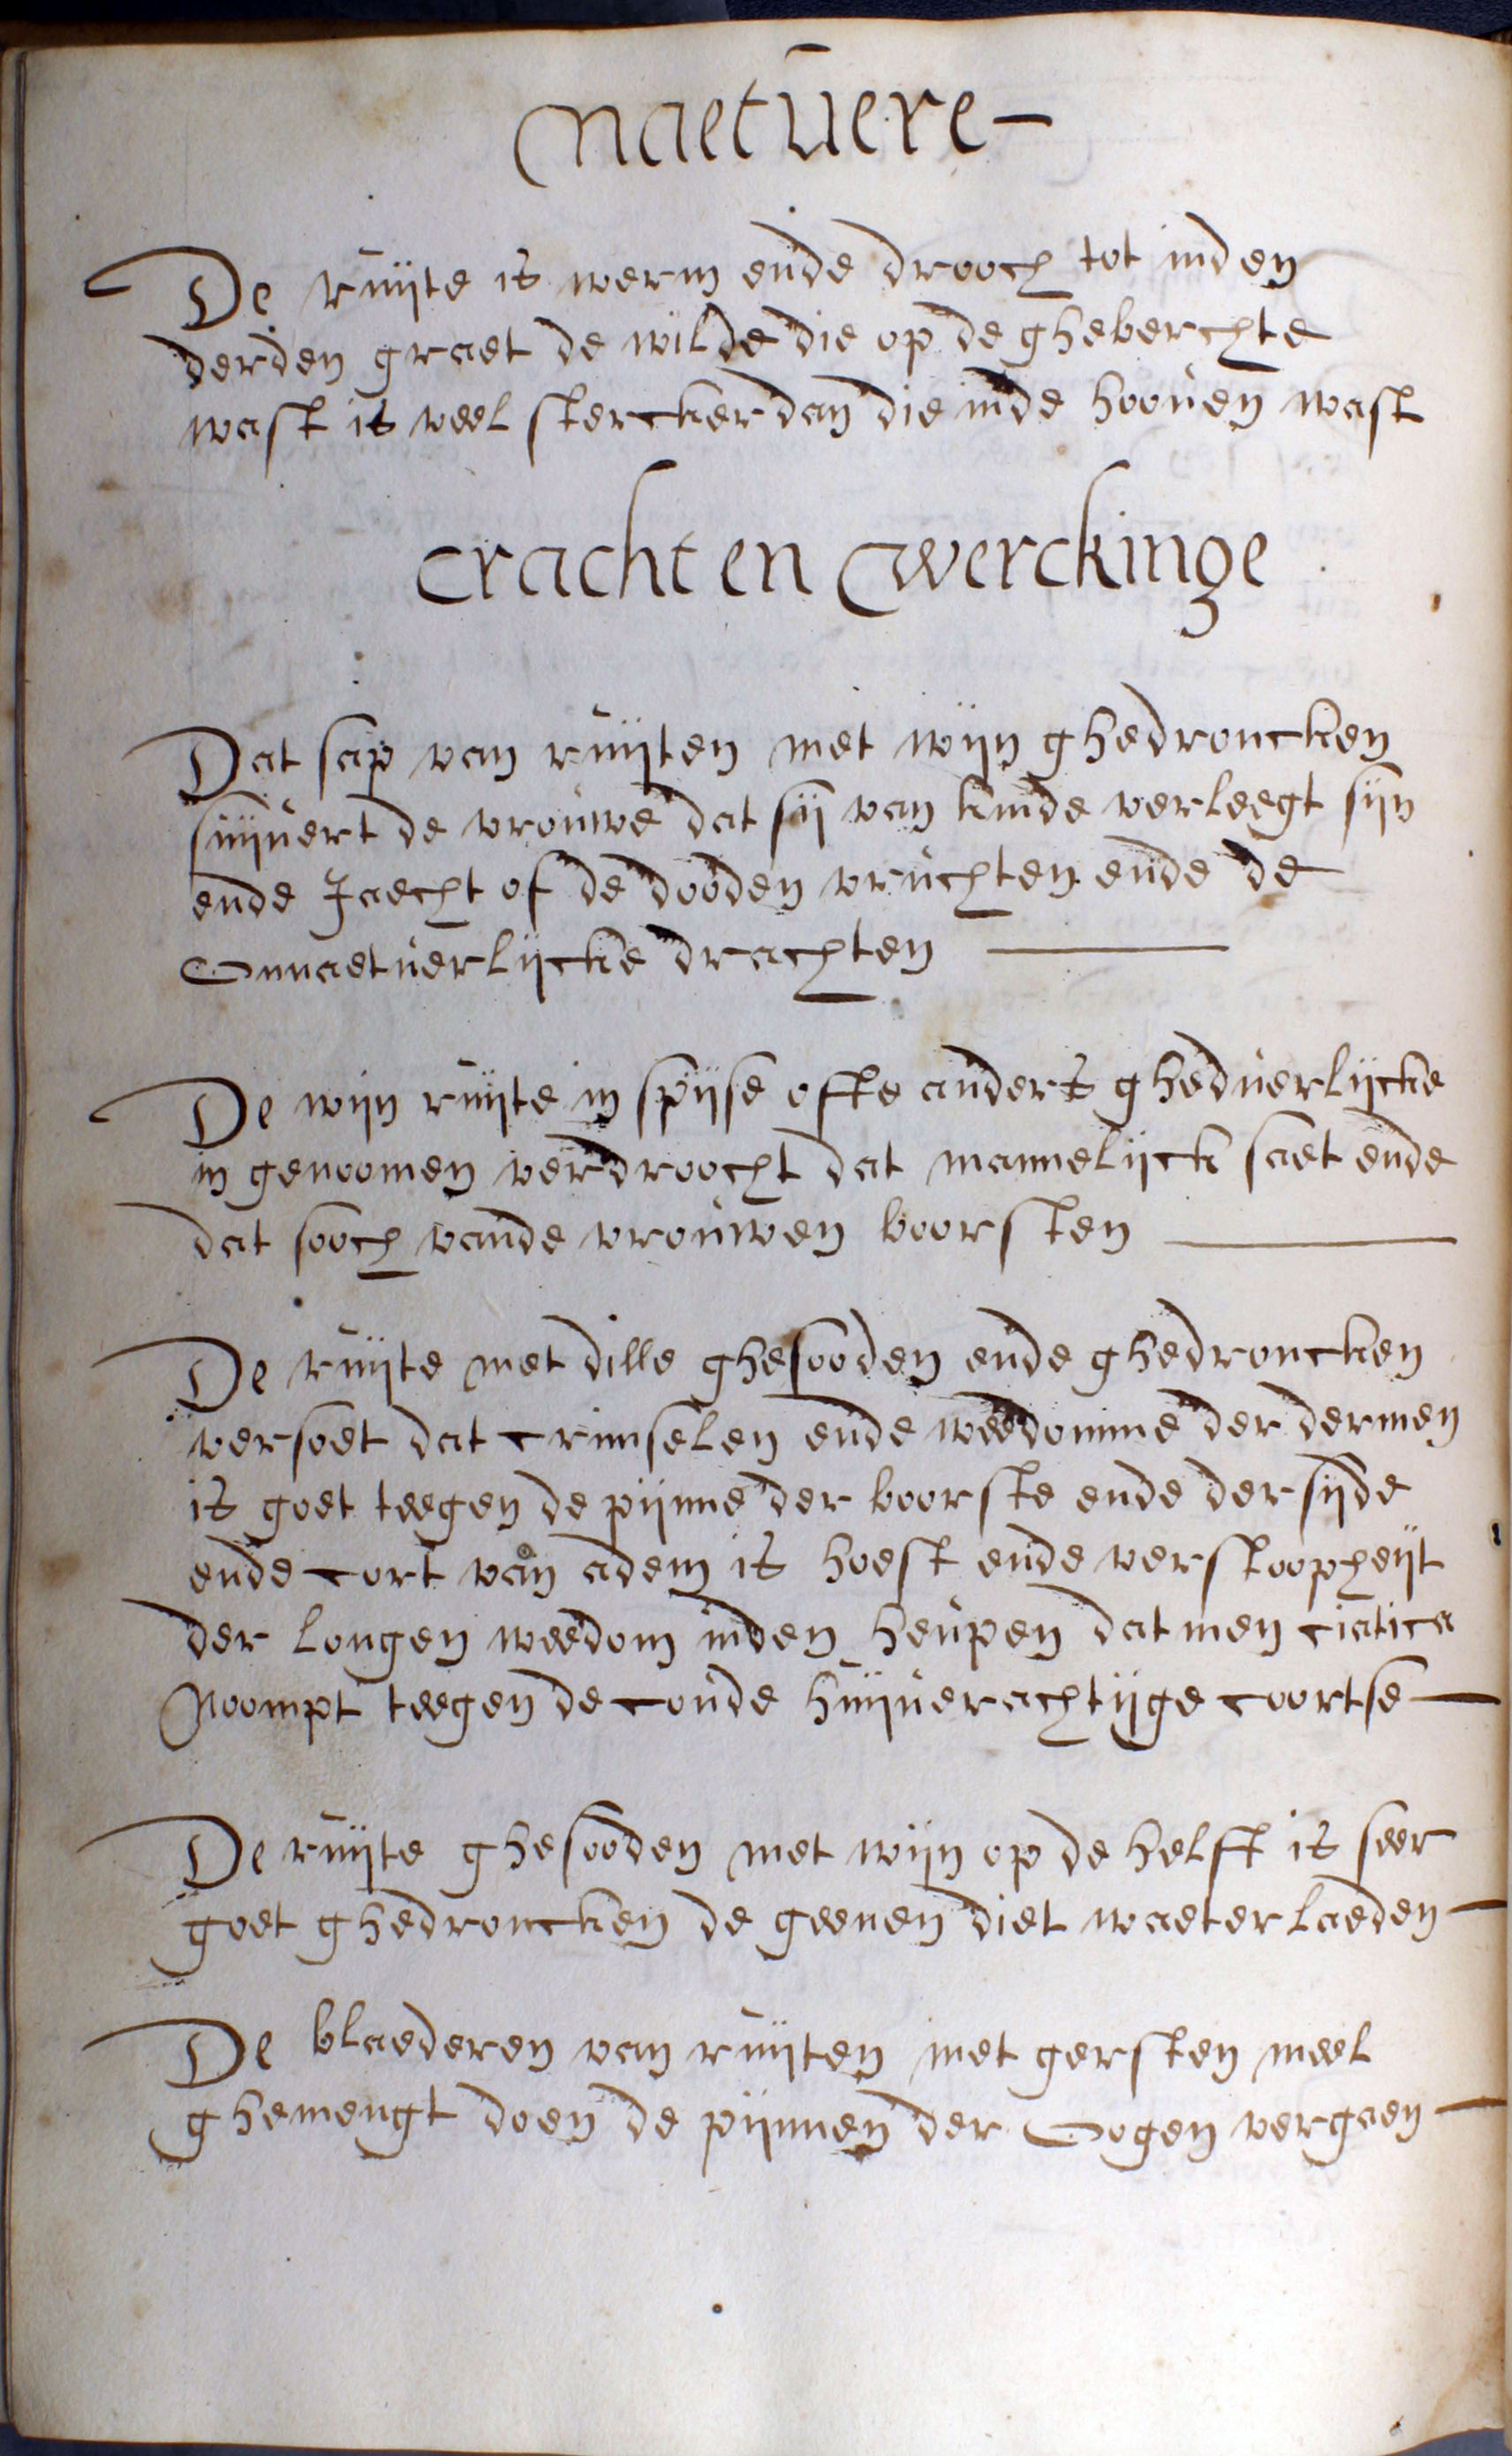 Naetuere -
De ruijte is werm ende drooch tot inden
derden graet de wilde die op de gheberchte
wast is veel stercker dan die inde hooven wast
cracht en werckinge
Dat sap van ruijten met wijn ghedroncken
suijvert de vrouwe dat sij van kinde verleegt sijn
ende Jaecht of de dooden vruchten ende de
Onnaetuerlijcke drachten
De wijn ruijte in spijse ofte anders ghedverlijcke
in genoomen verdroocht dat mannelijck saet ende
dat sooch vande vrouwen boorsten
De ruijte met dille ghesooden ende ghedroncken
versoet dat crimselen ende weedomme der dermen
is goet teegen de pijnne der boorste ende der sijde
ende cort van adem is hoest ende verstoopheijt
der longen weedom inden heupen datmen ciatica
Noompt teegen de coude huijverachtijge coortse -
De ruijte ghesooden met wijn op de helft is seer
goet ghedroncken de geenen diet waeter laeden -
De blaederen van ruijten met gersten meel
ghemengt doen de pijnnen der Oogen vergaen -